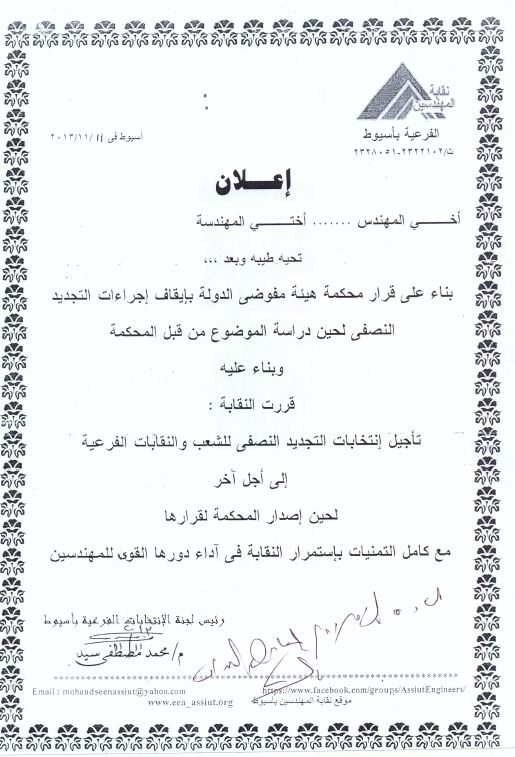 نقابة
المهندسين
الفرعية بأسيوط
ت/٢٣٢٢١٠٢-٢٣٢٨٠٥١
أسيوط فى ١١/١١/٢٠١٣
إعـلان
أخـــي المهندس ....... أختـــي المهندسة
تحيه طيبه وبعد ,,,
بناء على قرار محكمة هيئة مفوضى الدولة بإيقاف إجراءات التجديد
النصفى لحين دراسة الموضوع من قبل المحكمة
وبناء عليه
قررت النقابة :
تأجيل إنتخابات التجديد النصفى للشعب والنقابات الفرعية
إلى أجل آخر
لحين إصدار المحكمة لقرارها
مع كامل التمنيات بإستمرار النقابة فى آداء دورها القوى للمهندسين
رئيس لجنة الإنتخابات الفرعية بأسيوط
م/محمد مصطفى سيد
Email : mohandseenassiut@yahoo.com
https://www.facebook.com/groups/AssiutEngineers/
www.eea_assiut.org
موقع نقابة المهندسين بأسيوط